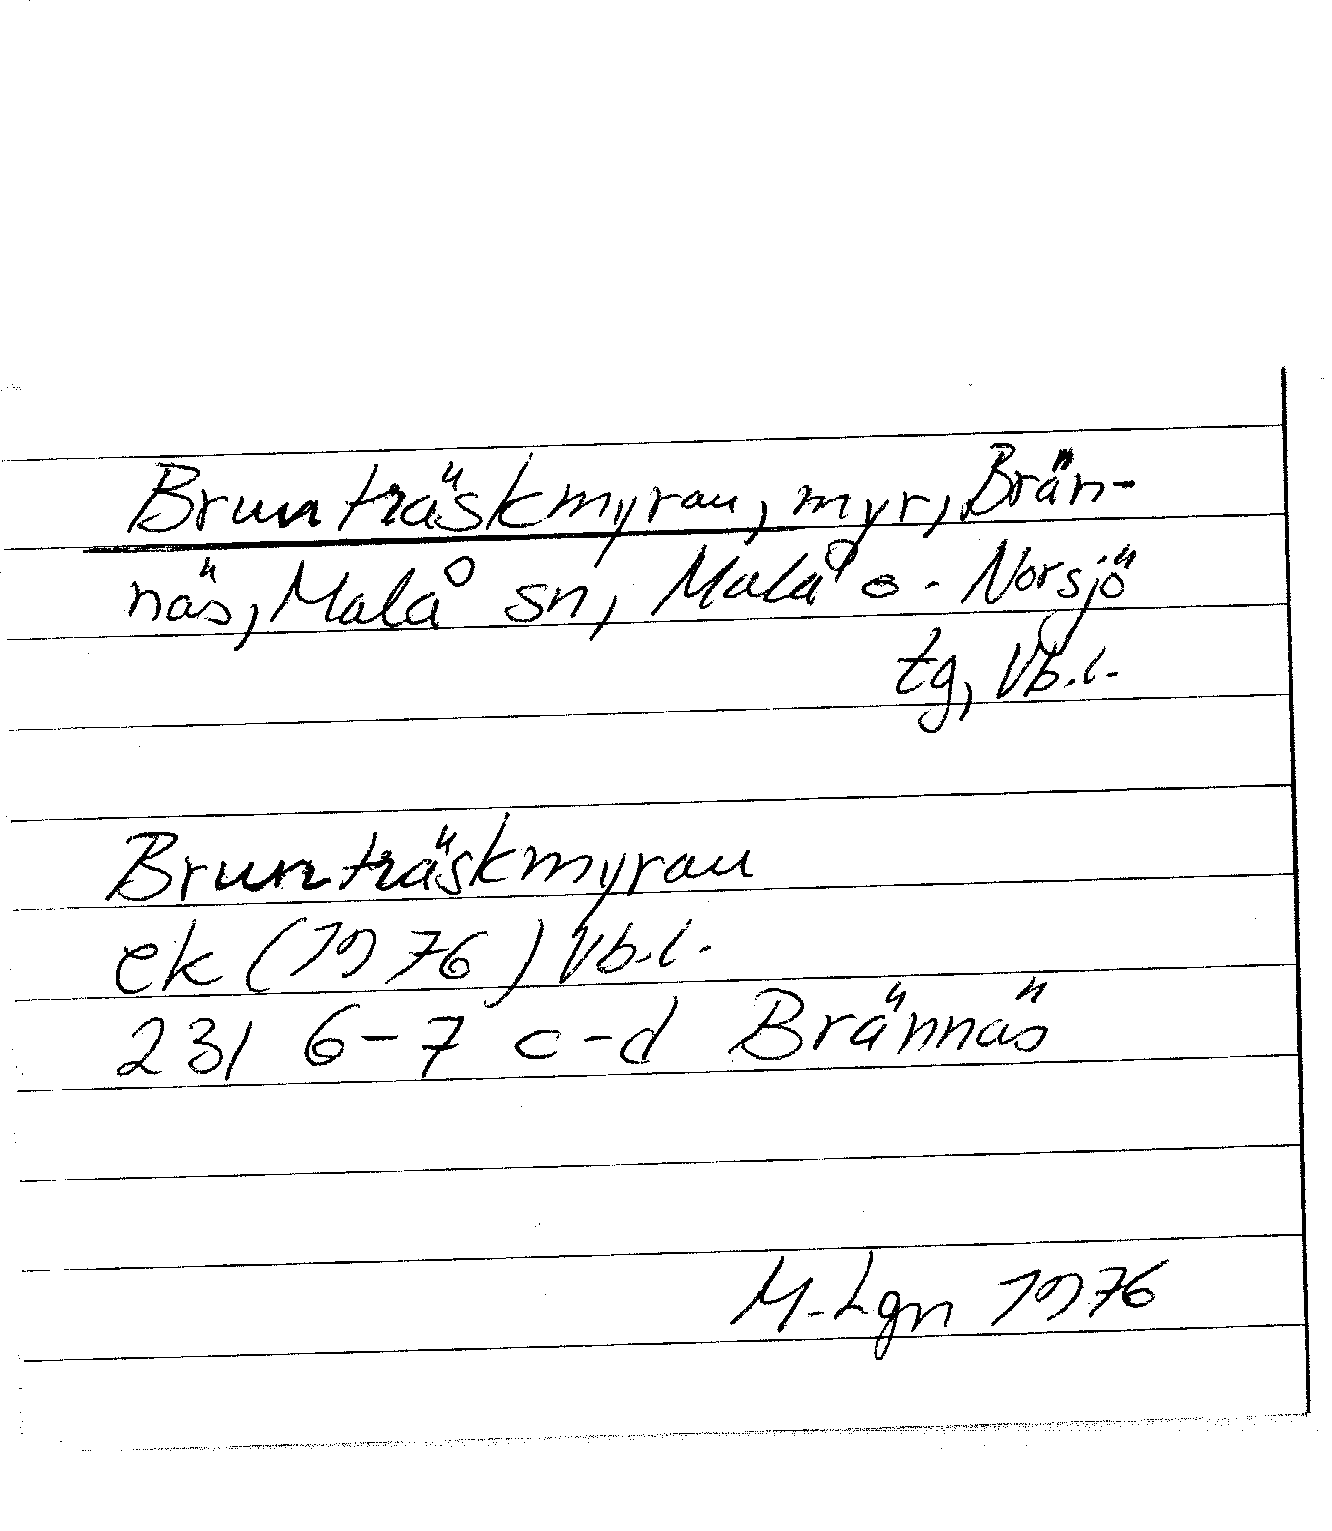 Brunträskmyran, myr, Brän-
näs, Malå sn, Malå o. Norsjö
tg, Vb.l.
Brunträskmyran
ek (1976) Vb.l.
23I 6-7 c-d Brännäs
M. Lgn 1976